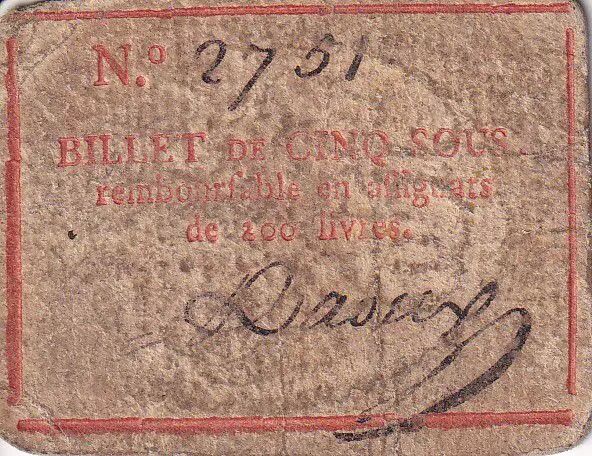 N.º 2751
BILLET DE CINQ SOUS.
rembourſable en aſſignats
de 200 livres.